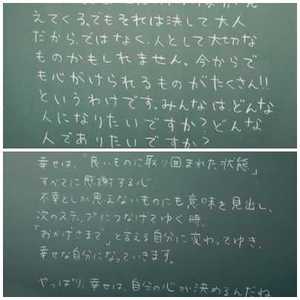 えてくる。でもそれは決して大人
だから、ではなく、人として大切な
ものかもしれません。今からで
も心がけられるものがたくさん!!
というわけです。みんなはどんな
人になりたいですか？どんな
人でありたいですか？
幸せは、「良いものに取り囲まれた状態」
すべてに感謝する心
不幸としか思えないものにも意味を見出し、
次のステップにつなげてゆく時、
「おかげさまで」と言える自分に変わってゆき、
幸せな自分になっていきます。
やっぱり、幸せは、自分の心が決めるんだね